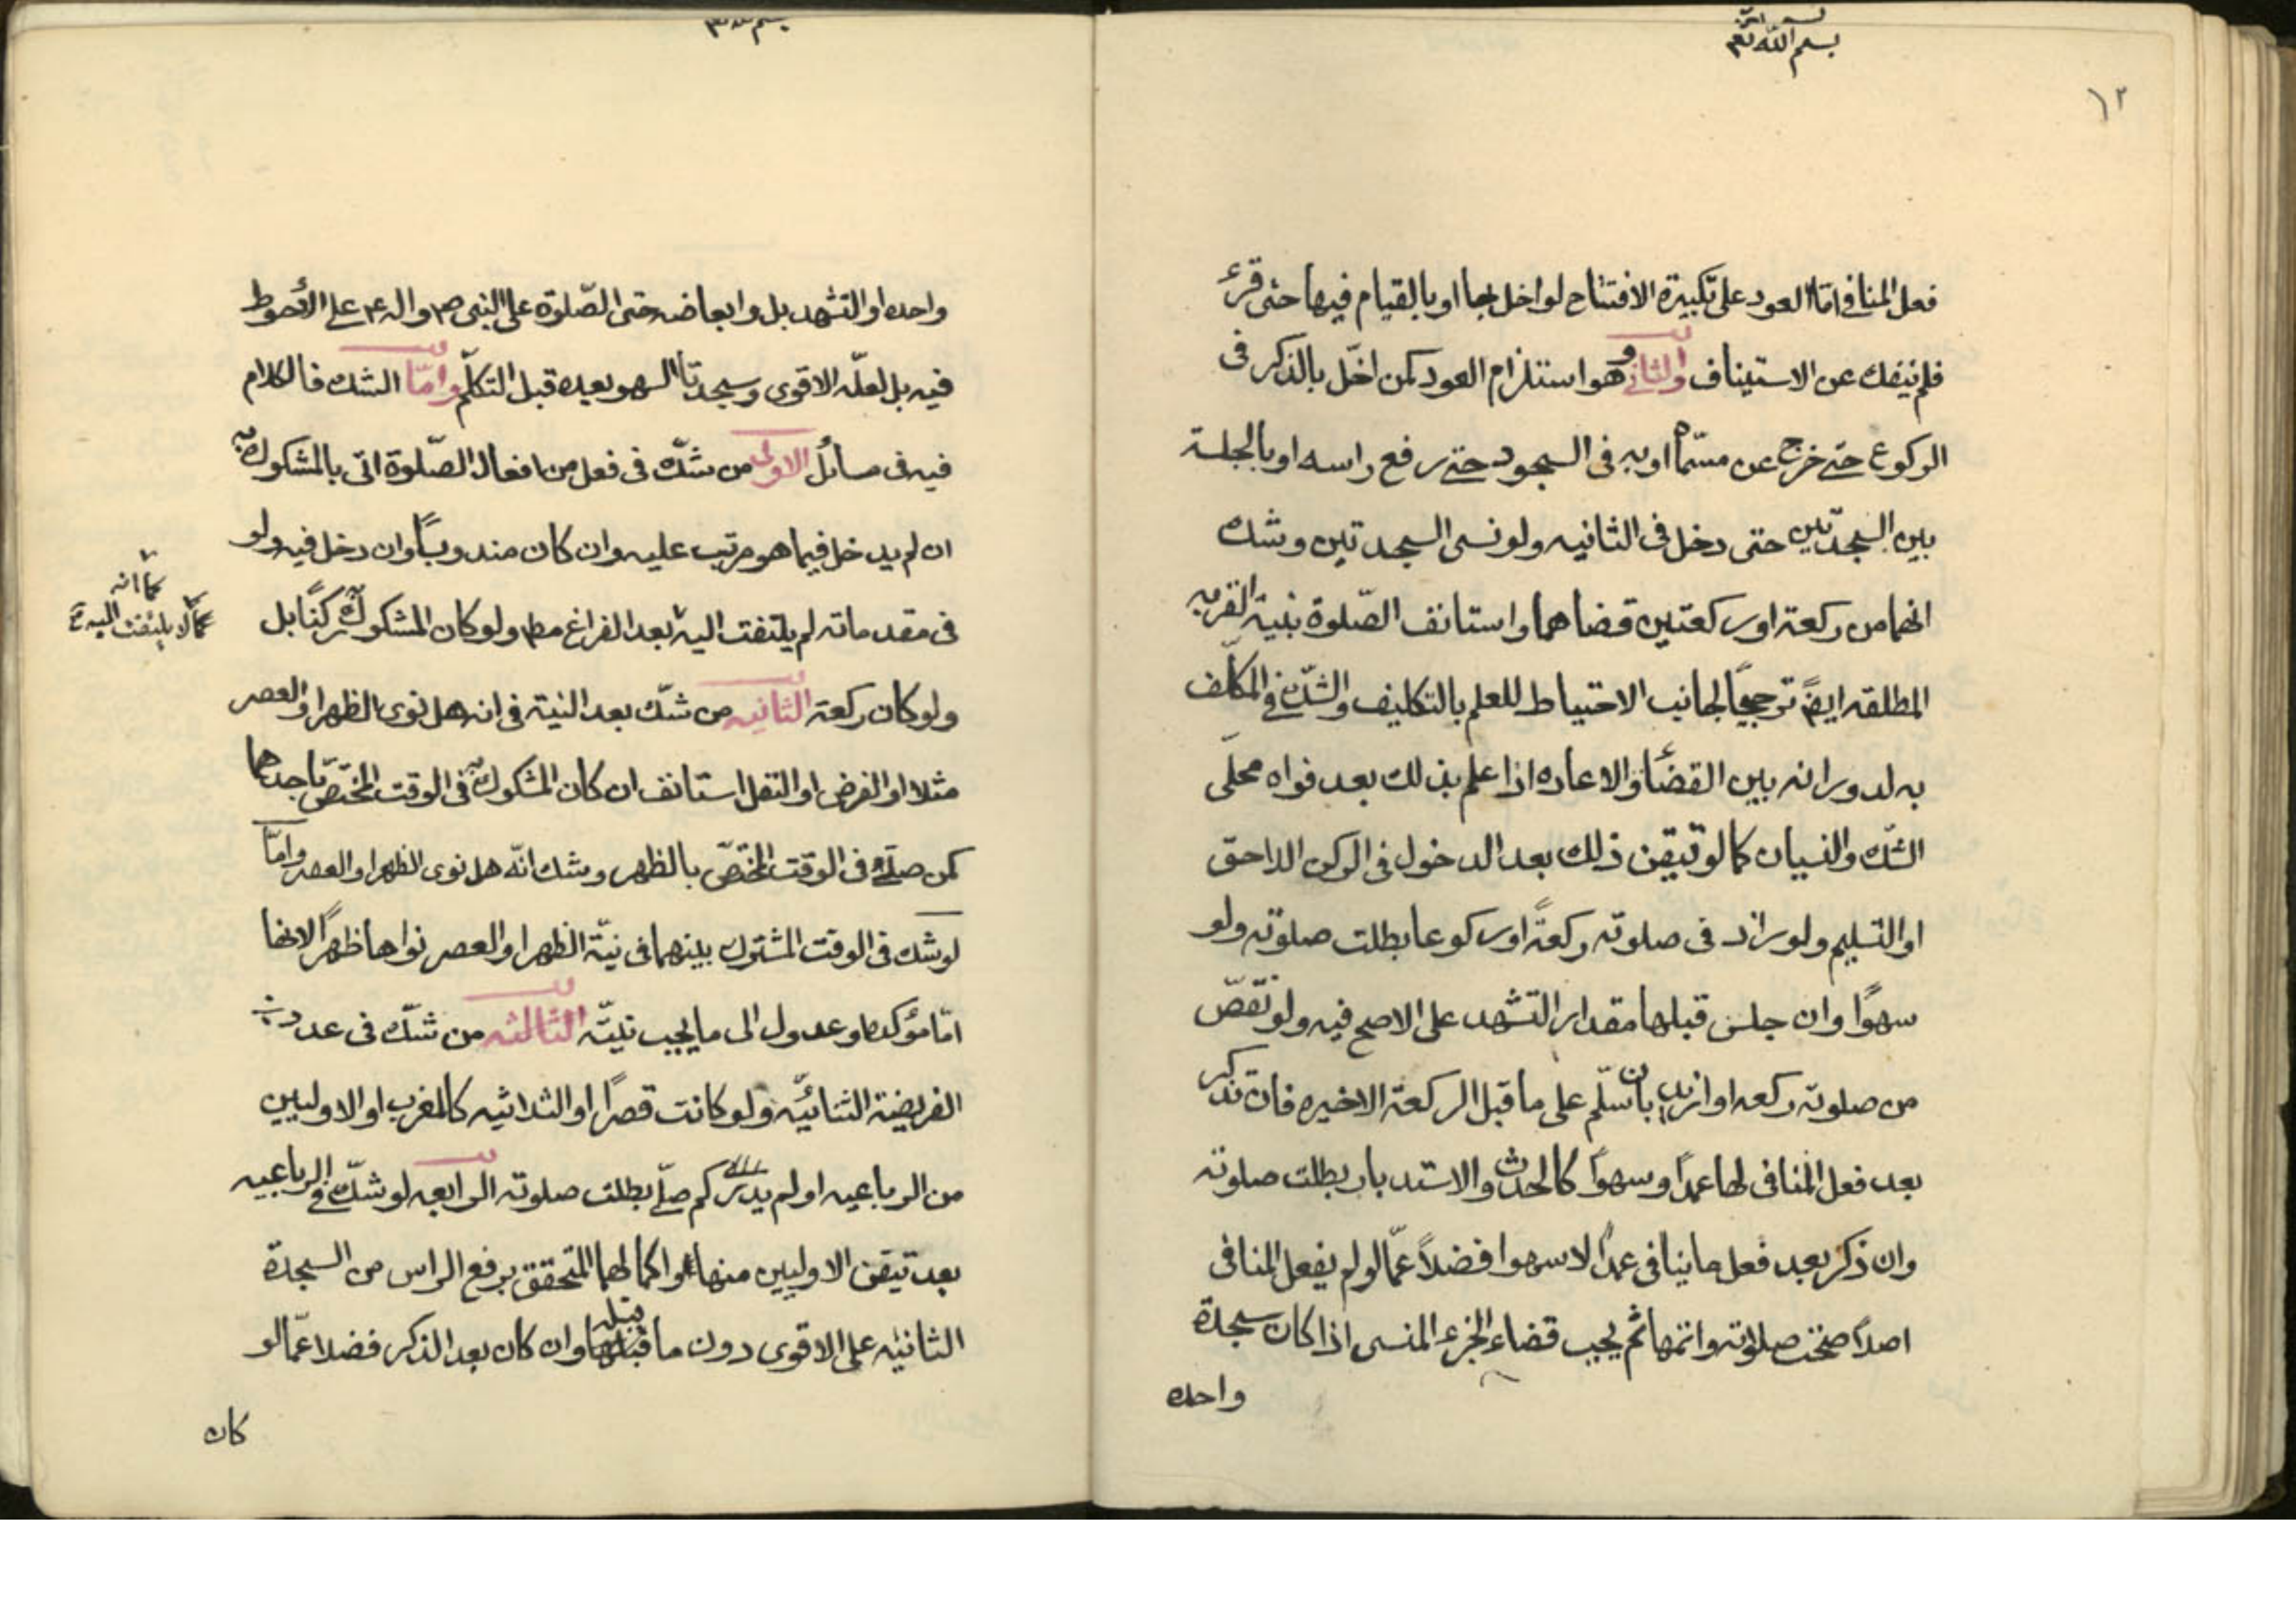 بسم الله تعم
١٢
فعل المنافى امّا العود على تكبيرة الافتتاح لو اخل بها او بالقيام فيها حتى قرئ
فلم ينفك عن الاستيناف والثانى وهو استلزام العود كمن اخلّ بالذكر فى
الركوع حتى خرج عن مسمّاه او به فى السجود حتى رفع راسه او بالجلسة
بين السجدتين حتى دخل فى الثانيه ولو نسى السجدتين وشك
انهما من ركعة او ركعتين قضاهما واستانف الصّلوة بنية القربه
المطلقه ايضً ترجيحًا لجانب الاحتياط للعلم بالتكليف والشكّ فى المكلّف
به لدورانه بين القضاء والاعاده اذا علم بذلك بعد فواه محلّى
الشكّ والنسيان كما لو تيقن ذلك بعد الدخول فى الركن اللاحق
او التسليم ولو زاد فى صلوته ركعةً او ركوعا بطلت صلوته ولو
سهوًا وان جلس قبلها مقدار التشهد على الاصح فيه ولو نقص
من صلوته ركعه او ازيد بان سلّم على ما قبل الركعة الاخيره فان تذكر
بعد فعل المنافى لها عمدًا وسهوًا كالحدث والاستدبار بطلت صلوته
وان ذكر بعد فعل ما ينافى عمدًا لا سهوا فضلاً عمّا لو لم يفعل المنافى
اصلاً صحّت صلوته واتمها ثم يجب قضاء الجزء المنسى اذا كان سجدة
واحده
واحده او التشهد بل وابعاضه حتى الصّلوة على النبى ص واله ع على الأحوط
فيه بل لعلّه الاقوى وسجدتا السهو بعده قبل التكلّم وامّا الشك فالكلام
فيه فى مسائل الاولى من شكّ فى فعل من افعال الصّلوة اتى بالمشكوك فيه
ان لم يدخل فيما هو مرتب عليه وان كان مندوبًا وان دخل فيه ولو
فى مقدماته لم يلتفت اليه بعد الفراغ مطم ولو كان المشكوك فيه ركنًا بل
كما انه
لا يلتفت اليه
ولو كان ركعة الثانيه من شكّ بعد النية فى انه هل نوى الظهر او العصر
مثلا او الفرض او النفل استانف ان كان المشكوك فيه فى الوقت المختصّ باحدهما
كمن صلّى فى الوقت المختصّ بالظهر وشك انّه هل نوى الظهر او العصر وامّا
لو شك فى الوقت المشترك بينهما فى نيّة الظهر او العصر نواها ظهرًا لانها
امّا مؤكده او عدول الى ما يجب نيّته الثالثه من شكّ فى عدد
الفريضة الثنائيّه ولو كانت قصرًا او الثلاثيه كالمغرب او الاوليين
من الرباعيه او لم يدر كم صلّى بطلت صلوته الرابعه لو شكّ فى الرباعيه
بعد تيقن الاوليين منها واكمالهما المتحقق برفع الراس من السجدة
الثانيه على الاقوى دون ما قبله وان كان بعد الذكر فضلا عمّا لو
كان